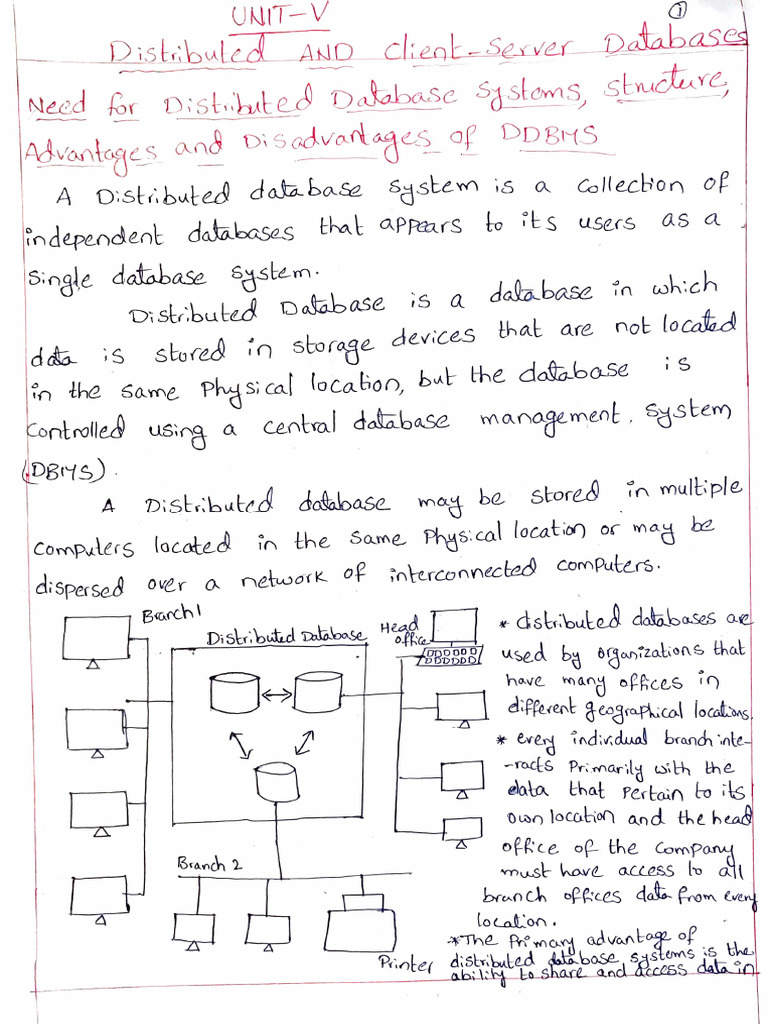 UNIT-V
1
Distributed AND Client-Server Databases
Need for Distributed Database Systems, Structure,
Advantages and Disadvantages of DDBMS
A Distributed database system is a collection of
independent databases that appears to its users as a
single database system.
Distributed Database is a database in which
data is stored in storage devices that are not located
in the same Physical location, but the database is
controlled using a central database management. system
(DBMS).
A Distributed database may be stored in multiple
computers located in the same Physical location or may be
dispersed over a network of interconnected computers.
Branch1
Distributed Database
Head
office
Branch 2
Printer
* distributed databases are
used by organizations that
have many offices in
different geographical locations.
* every individual branch inte-
-racts Primarily with the
data that pertain to its
own location and the head
office of the company
must have access to all
branch offices data from every
location.
* The Primary advantage of
distributed database systems is the
ability to share and access data in